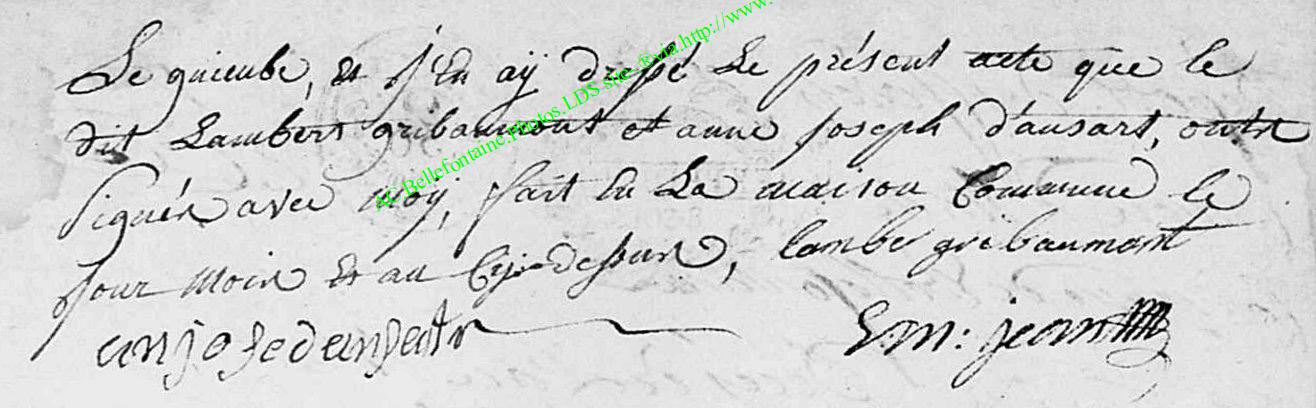 Le gnieube, et j'En aÿ dressé Le présent acte que le
dit Lambert gribaumont et anne joseph d'ansart, ontr
signér avec moÿ, fait En La maison Commune le
jour moir et an Cy-dessur, lambe gribaumont
anjosedansart E m: jean
de Bellefontaine.Photos LDS site ®via.http://www.